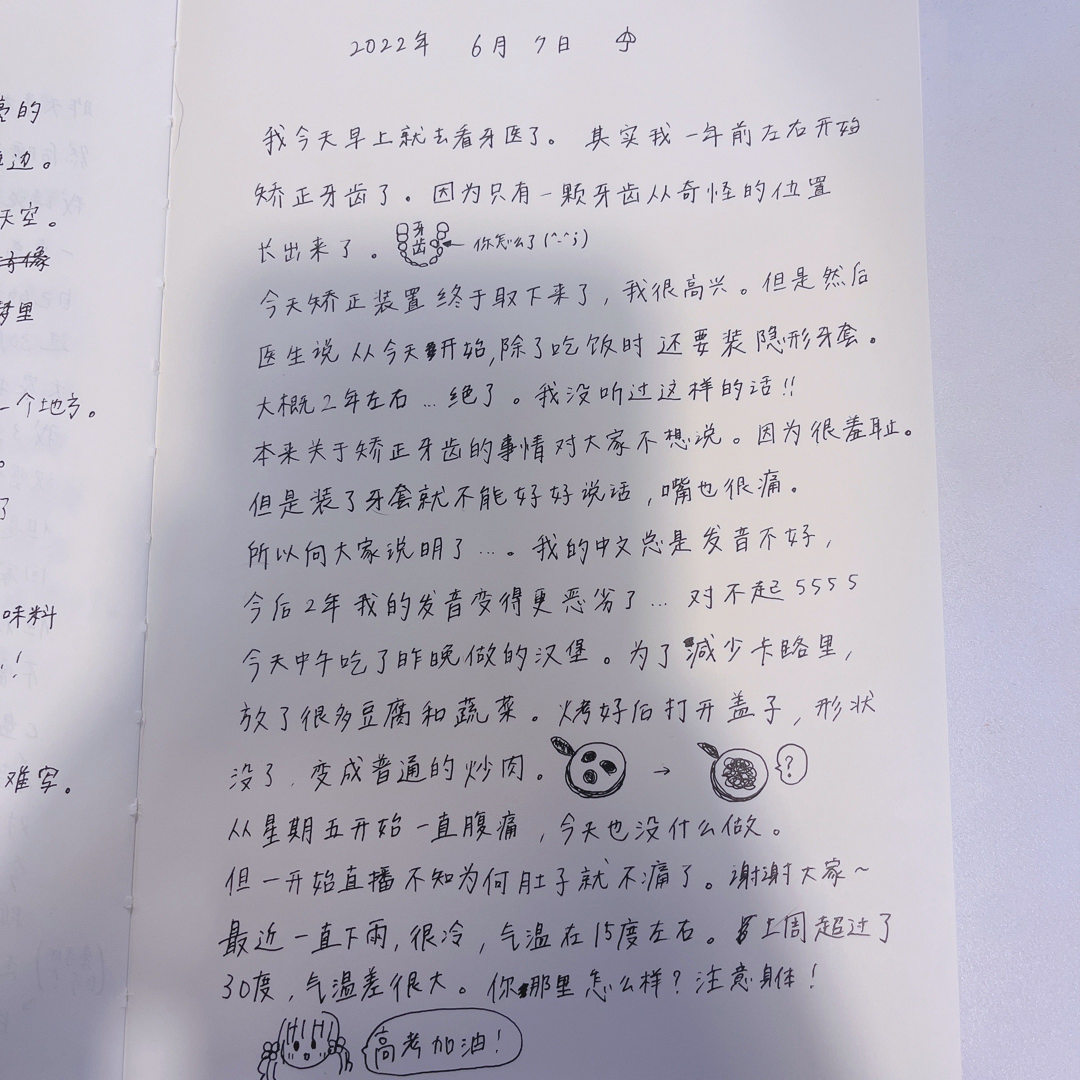 亮的
边。
天空。
梦里
一个地方。
。
了
味料
!
难写。
2022年 6月 7日
我今天早上就去看牙医了。 其实我一年前左右开始
矫正牙齿了。因为只有一颗牙齿从奇怪的位置
长出来了。 牙齿 你怎么了(^-^;)
今天矫正装置终于取下来了,我很高兴。但是然后
医生说从今天开始,除了吃饭时还要装隐形牙套。
大概2年左右…绝了。我没听过这样的话!!
本来关于矫正牙齿的事情对大家不想说。因为很羞耻。
但是装了牙套就不能好好说话,嘴也很痛。
所以向大家说明了…。我的中文总是发音不好,
今后2年我的发音变得更恶劣了… 对不起5555
今天中午吃了昨晚做的汉堡。为了减少卡路里,
放了很多豆腐和蔬菜。烤好后打开盖子,形状
没了,变成普通的炒肉。 → ?
从星期五开始一直腹痛,今天也没什么做。
但一开始直播不知为何肚子就不痛了。谢谢大家~
最近一直下雨,很冷,气温在15度左右。上周超过了
30度,气温差很大。你那里怎么样?注意身体!
高考加油!